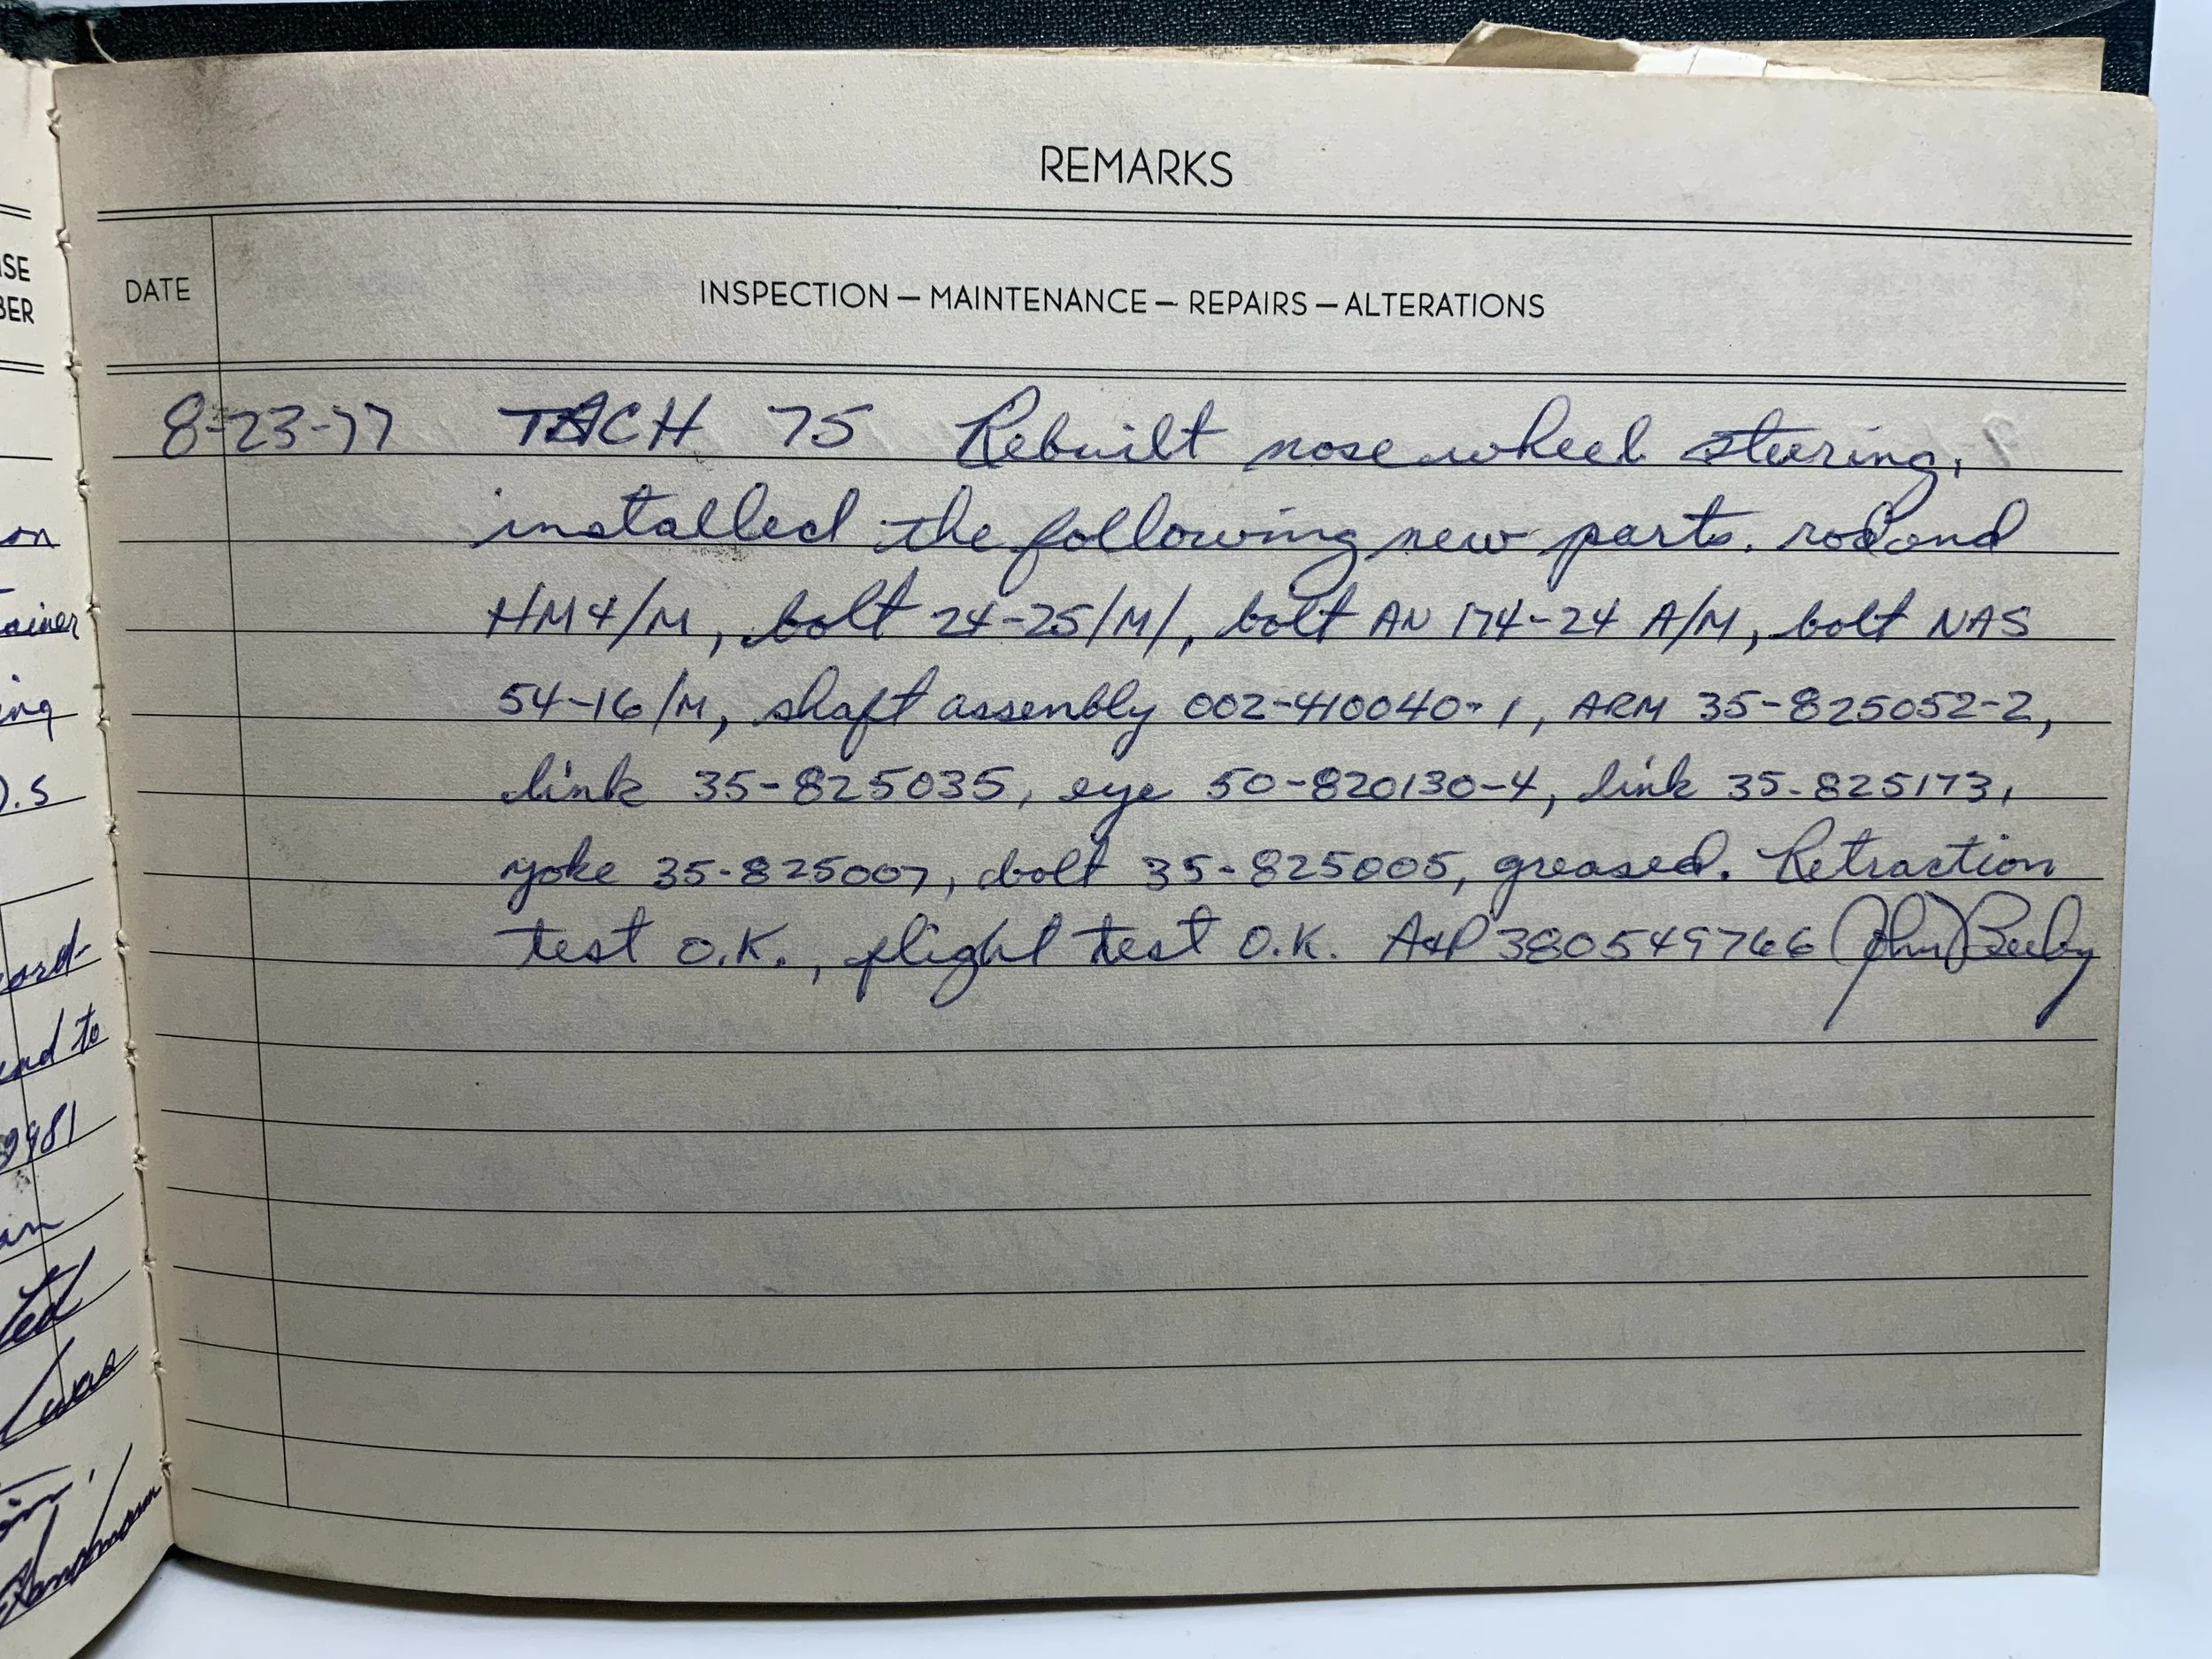 REMARKS
DATE INSPECTION — MAINTENANCE — REPAIRS — ALTERATIONS
8-23-77 TACH 75 Rebuilt nose wheel steering,
installed the following new parts. rod end
HM4/M, bolt 24-25/M/, bolt AN 174-24 A/M, bolt NAS
54-16/M, shaft assembly 002-410040-1, ARM 35-825052-2,
link 35-825035, eye 50-820130-4, link 35-825173,
yoke 35-825007, bolt 35-825005, greased. Retraction
test O.K., flight test O.K. A&P 380549766 John Beeby
ISE
BER
on
ainer
ing
D.S
cord-
end to
9981
an
ted